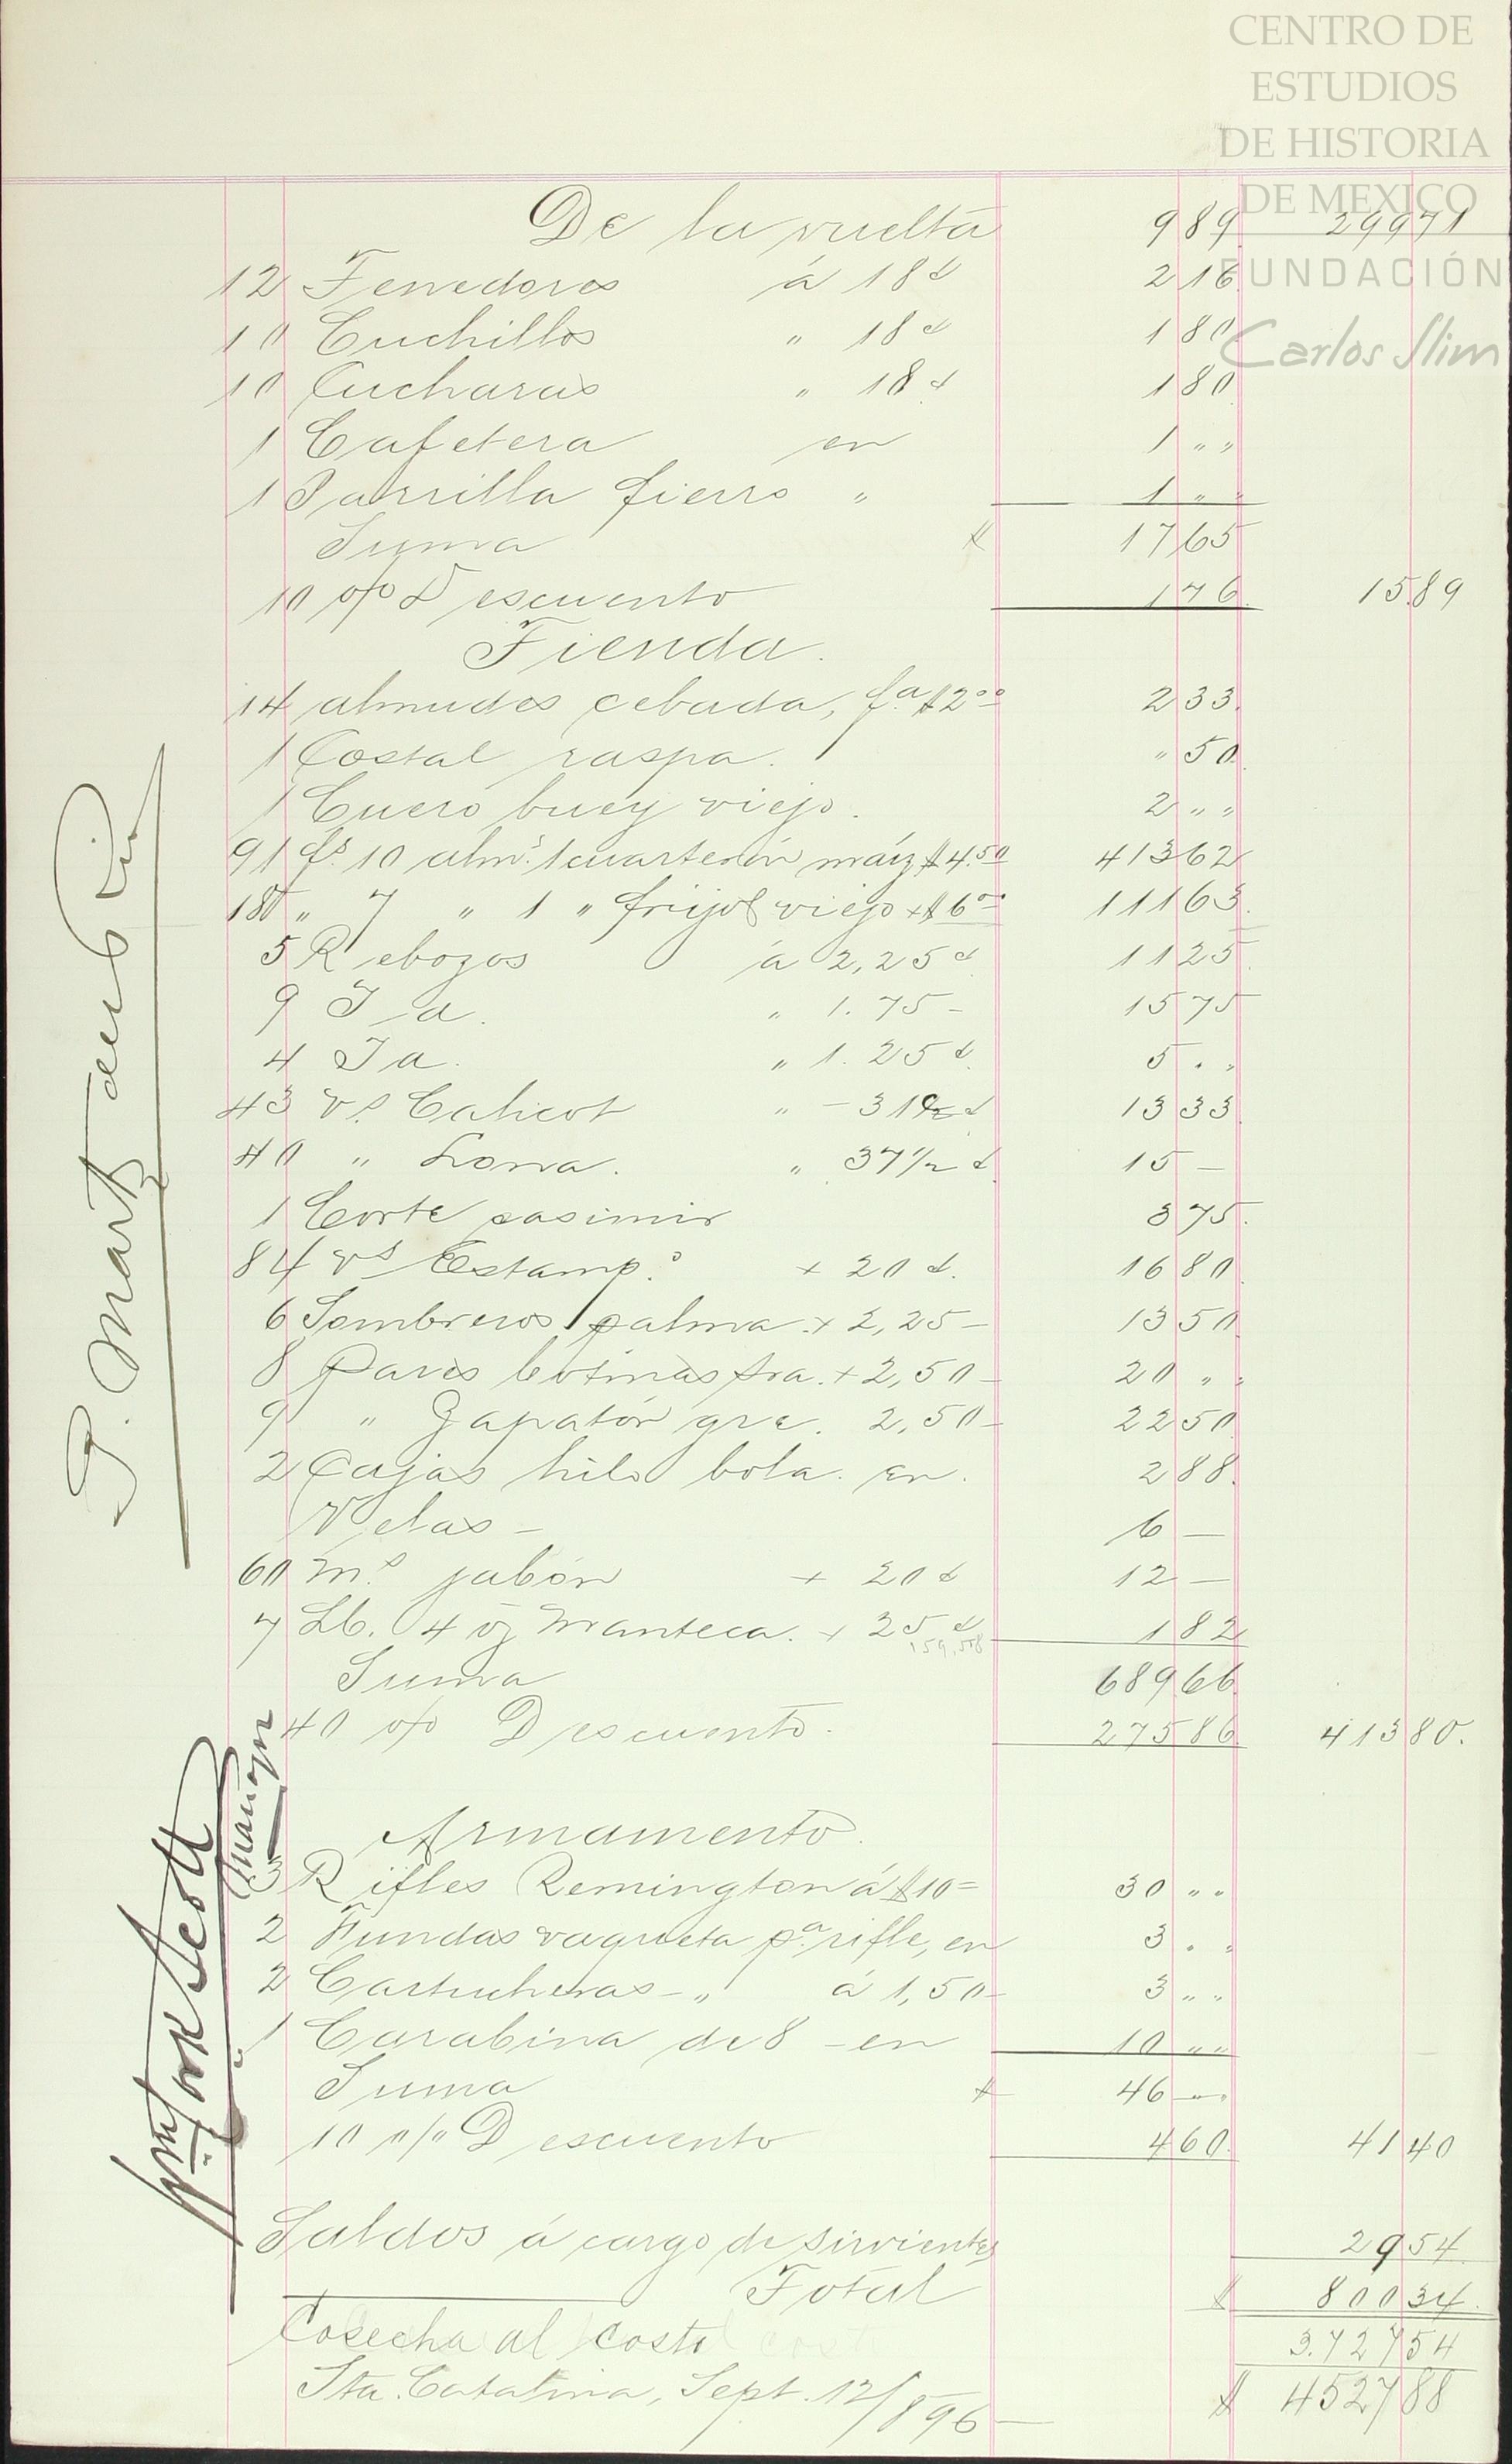 CENTRO DE
ESTUDIOS
DE HISTORIA
DE MEXICO
FUNDACIÓN
Carlos Slim
De la vuelta 9 89 299 71
12 Tenedores á 18 ¢ 2 16
10 Cuchillos " 18 ¢ 1 80
10 Cucharas " 18 ¢ 1 80
1 Cafetera en 1 " "
1 Parrilla fierro " 1 " "
Suma $ 17 65
10 o/o Descuento 1 76 15 89
Tienda.
14 almudes cebada, fª $2.00 2 33
1 Costal raspa. " 50
1 Cuero buey viejo. 2 " "
91 fs. 10 alms. 1 cuarterón máiz $4.50 413 62
18 " 7 " 1 " frijol viejo + $6.00 111 63
5 Rebozos á 2,25 ¢ 11 25
9 Id. " 1.75 - 15 75
4 Id. " 1.25 ¢ 5 " "
43 vs. Calicot " - 31 ¢ 13 33
40 " Lona. " 37 1/2 ¢ 15 —
1 Corte casimir 3 75
84 vs Estamp.º + 20 ¢. 16 80
6 Sombreros palma + 2,25 - 13 50
8 Pares botinas sra. + 2,50 - 20 " "
9 " Zapatón gre. 2,50 - 22 50
2 Cajas hilo bola. en. 2 88
Velas - 6 —
60 ms. jabón + 20 ¢ 12 —
7 Lb. 4 oz manteca. + 25 ¢ 1 82
Suma 689 66
40 o/o Descuento. 275 86 413 80.
Armamento.
3 Rifles Remington á $10= 30 " "
2 Fundas vaqueta pª rifle, en 3 " "
2 Cartucheras - " á 1,50 - 3 " "
1 Carabina de 8 - en 10 " "
Suma $ 46 " "
10 o/o Descuento 4 60 41 40
Saldos á cargo de sirvientes 29 54
Total $ 800 34
Cosecha al costo 3.727 54
Sta. Catalina, Sept. 12/896 — $ 4527 88